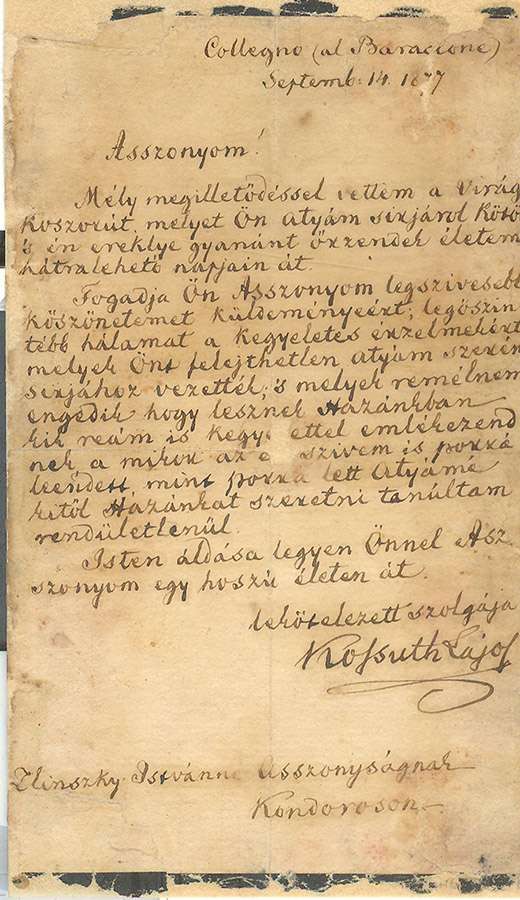 Collegno (al Baracione)
Septemb. 14. 1877
Asszonyom!
Mély megilletődéssel vettem a virág
koszorút melyet Ön atyám sirjáról kötö
's én ereklye gyanánt őrzendek életem
hátralehető napjain át.
Fogadja Ön Asszonyom legszivesebb
köszönetemet küldeményeért; legőszin
tébb hálámat a kegyeletes érzelmekért
melyek Önt felejthetlen atyám szerén
sirjához vezették; 's melyek remélnem
engedik hogy lesznek Hazánkban
kik reám is kegy ettel emlékezend
nek, a mikor az é szivem is porrá
leendett mint porrá lett Atyámé
kitől Hazánkat szeretni tanúltam
rendületlenül.
Isten áldása legyen Önnel Asz
szonyom egy hoszú életen át.
lekötelezett szolgája
Kossuth Lajos
Zlinszky Istvánné Asszonyságnak
Kondoroson